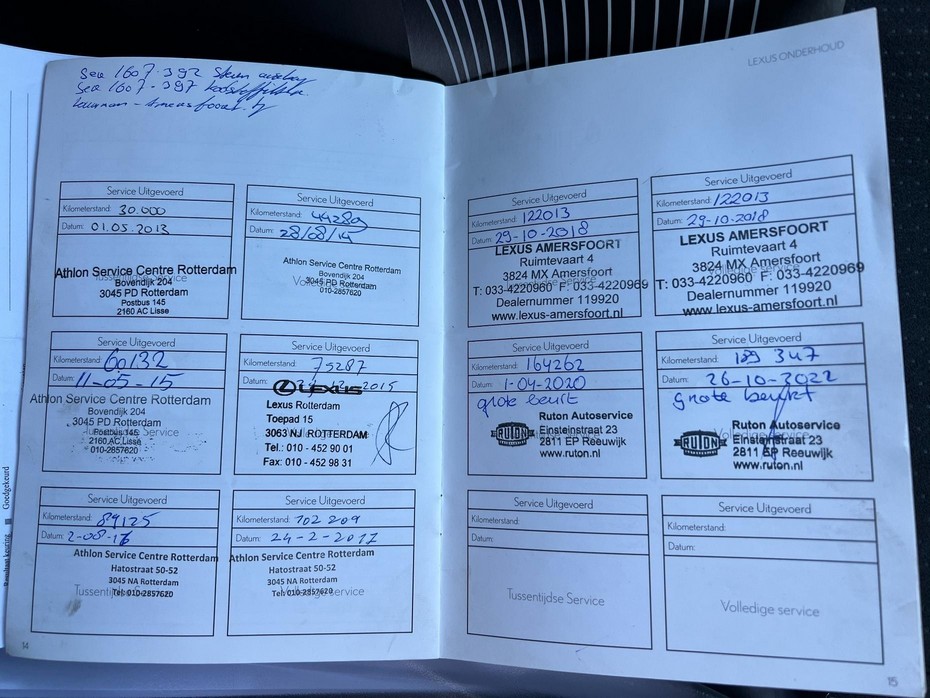 LEXUS ONDERHOUD
Sea 1607-392
Sea 1607-397
Service Uitgevoerd
Kilometerstand: 30.000
Datum: 01.05.2013
Tussentijdse Service
Athlon Service Centre Rotterdam
Bovendijk 204
3045 PD Rotterdam
Postbus 145
2160 AC Lisse
Service Uitgevoerd
Kilometerstand: 44289
Datum: 28/08/14
Athlon Service Centre Rotterdam
Bovendijk 204
3045 PD Rotterdam
010-2857620
Service Uitgevoerd
Kilometerstand: 60132
Datum: 11-05-15
Athlon Service Centre Rotterdam
Bovendijk 204
3045 PD Rotterdam
Postbus 145
2160 AC Lisse
010-2857620
Service Uitgevoerd
Kilometerstand: 75287
Datum: 2015
LEXUS
Lexus Rotterdam
Toepad 15
3063 NJ ROTTERDAM
Tel.: 010 - 452 90 01
Fax: 010 - 452 98 31
Service Uitgevoerd
Kilometerstand: 89125
Datum: 2-08-16
Athlon Service Centre Rotterdam
Hatostraat 50-52
3045 NA Rotterdam
Tel: 010-2857620
Tussentijdse Service
Service Uitgevoerd
Kilometerstand: 102209
Datum: 24-2-2017
Athlon Service Centre Rotterdam
Hatostraat 50-52
3045 NA Rotterdam
Tel: 010-2857620
Volledige service
14
Service Uitgevoerd
Kilometerstand: 122013
Datum: 29-10-2018
LEXUS AMERSFOORT
Ruimtevaart 4
3824 MX Amersfoort
T: 033-4220960 F: 033-4220969
Dealernummer 119920
www.lexus-amersfoort.nl
Service Uitgevoerd
Kilometerstand: 122013
Datum: 29-10-2018
LEXUS AMERSFOORT
Ruimtevaart 4
3824 MX Amersfoort
T: 033-4220960 F: 033-4220969
Dealernummer 119920
www.lexus-amersfoort.nl
Service Uitgevoerd
Kilometerstand: 164262
Datum: 1-04-2020
grote beurt
RUTON
Ruton Autoservice
Einsteinstraat 23
2811 EP Reeuwijk
www.ruton.nl
Service Uitgevoerd
Kilometerstand: 189 347
Datum: 26-10-2022
grote beurt
RUTON
Volledige service
Ruton Autoservice
Einsteinstraat 23
2811 EP Reeuwijk
www.ruton.nl
Service Uitgevoerd
Kilometerstand:
Datum:
Tussentijdse Service
Service Uitgevoerd
Kilometerstand:
Datum:
Volledige service
15
Goedgekeurd